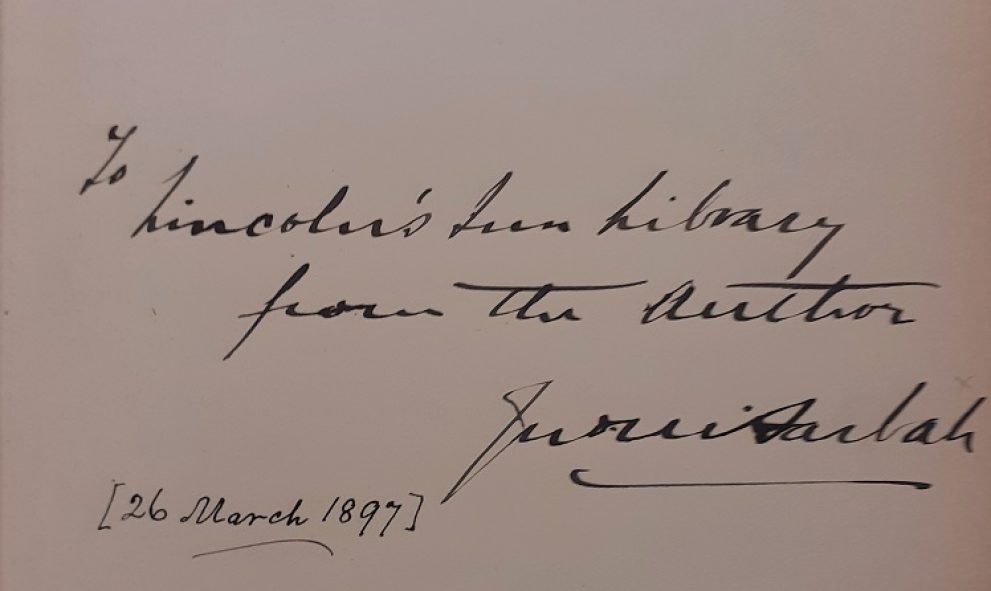 To
Lincoln's Inn Library
from the Author
Sarbah
[26 March 1897]